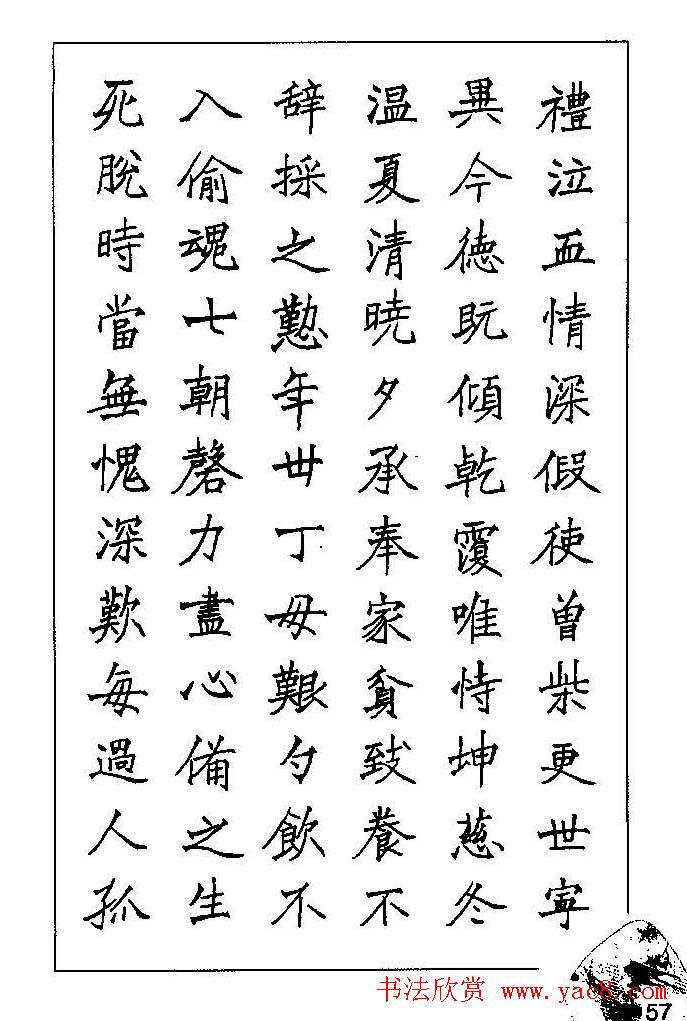 禮泣血情深假使曾柴更世寧
異今德既傾乾覆唯恃坤慈冬
温夏清曉夕承奉家貧致養不
辞採之懃年丗丁母艱勺飲不
入偷魂七朝磬力盡心備之生
死脫時當無愧深歎每過人孤
书法欣赏 www.yac8.com
57